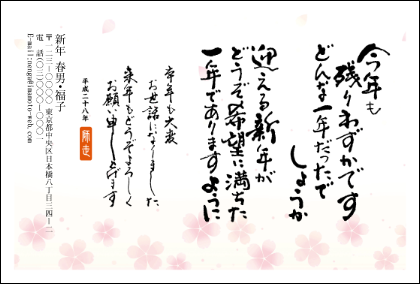 今年も
残りわずかです
どんな一年だったで
しょうか
迎える新年が
どうぞ希望に満ちた
一年でありますように
本年も大変
お世話になりました
来年もどうぞよろしく
お願い申し上げます
平成二十八年
師走
新年 春男・福子
〒一二三-〇〇〇〇 東京都中央区日本橋八丁目三四-二
電 話(〇三)〇〇〇〇-〇〇〇一